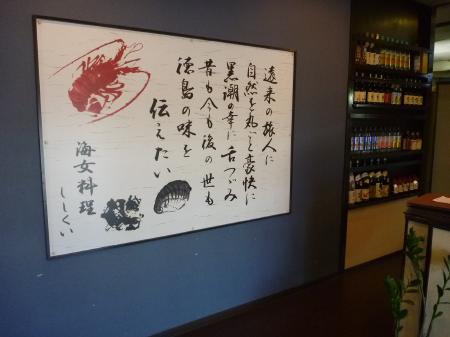 遠来の旅人に
自然を丸ごと豪快に
黒潮の幸に舌つづみ
昔も今も後の世も
徳島の味を
伝えたい
海女料理
ししくい